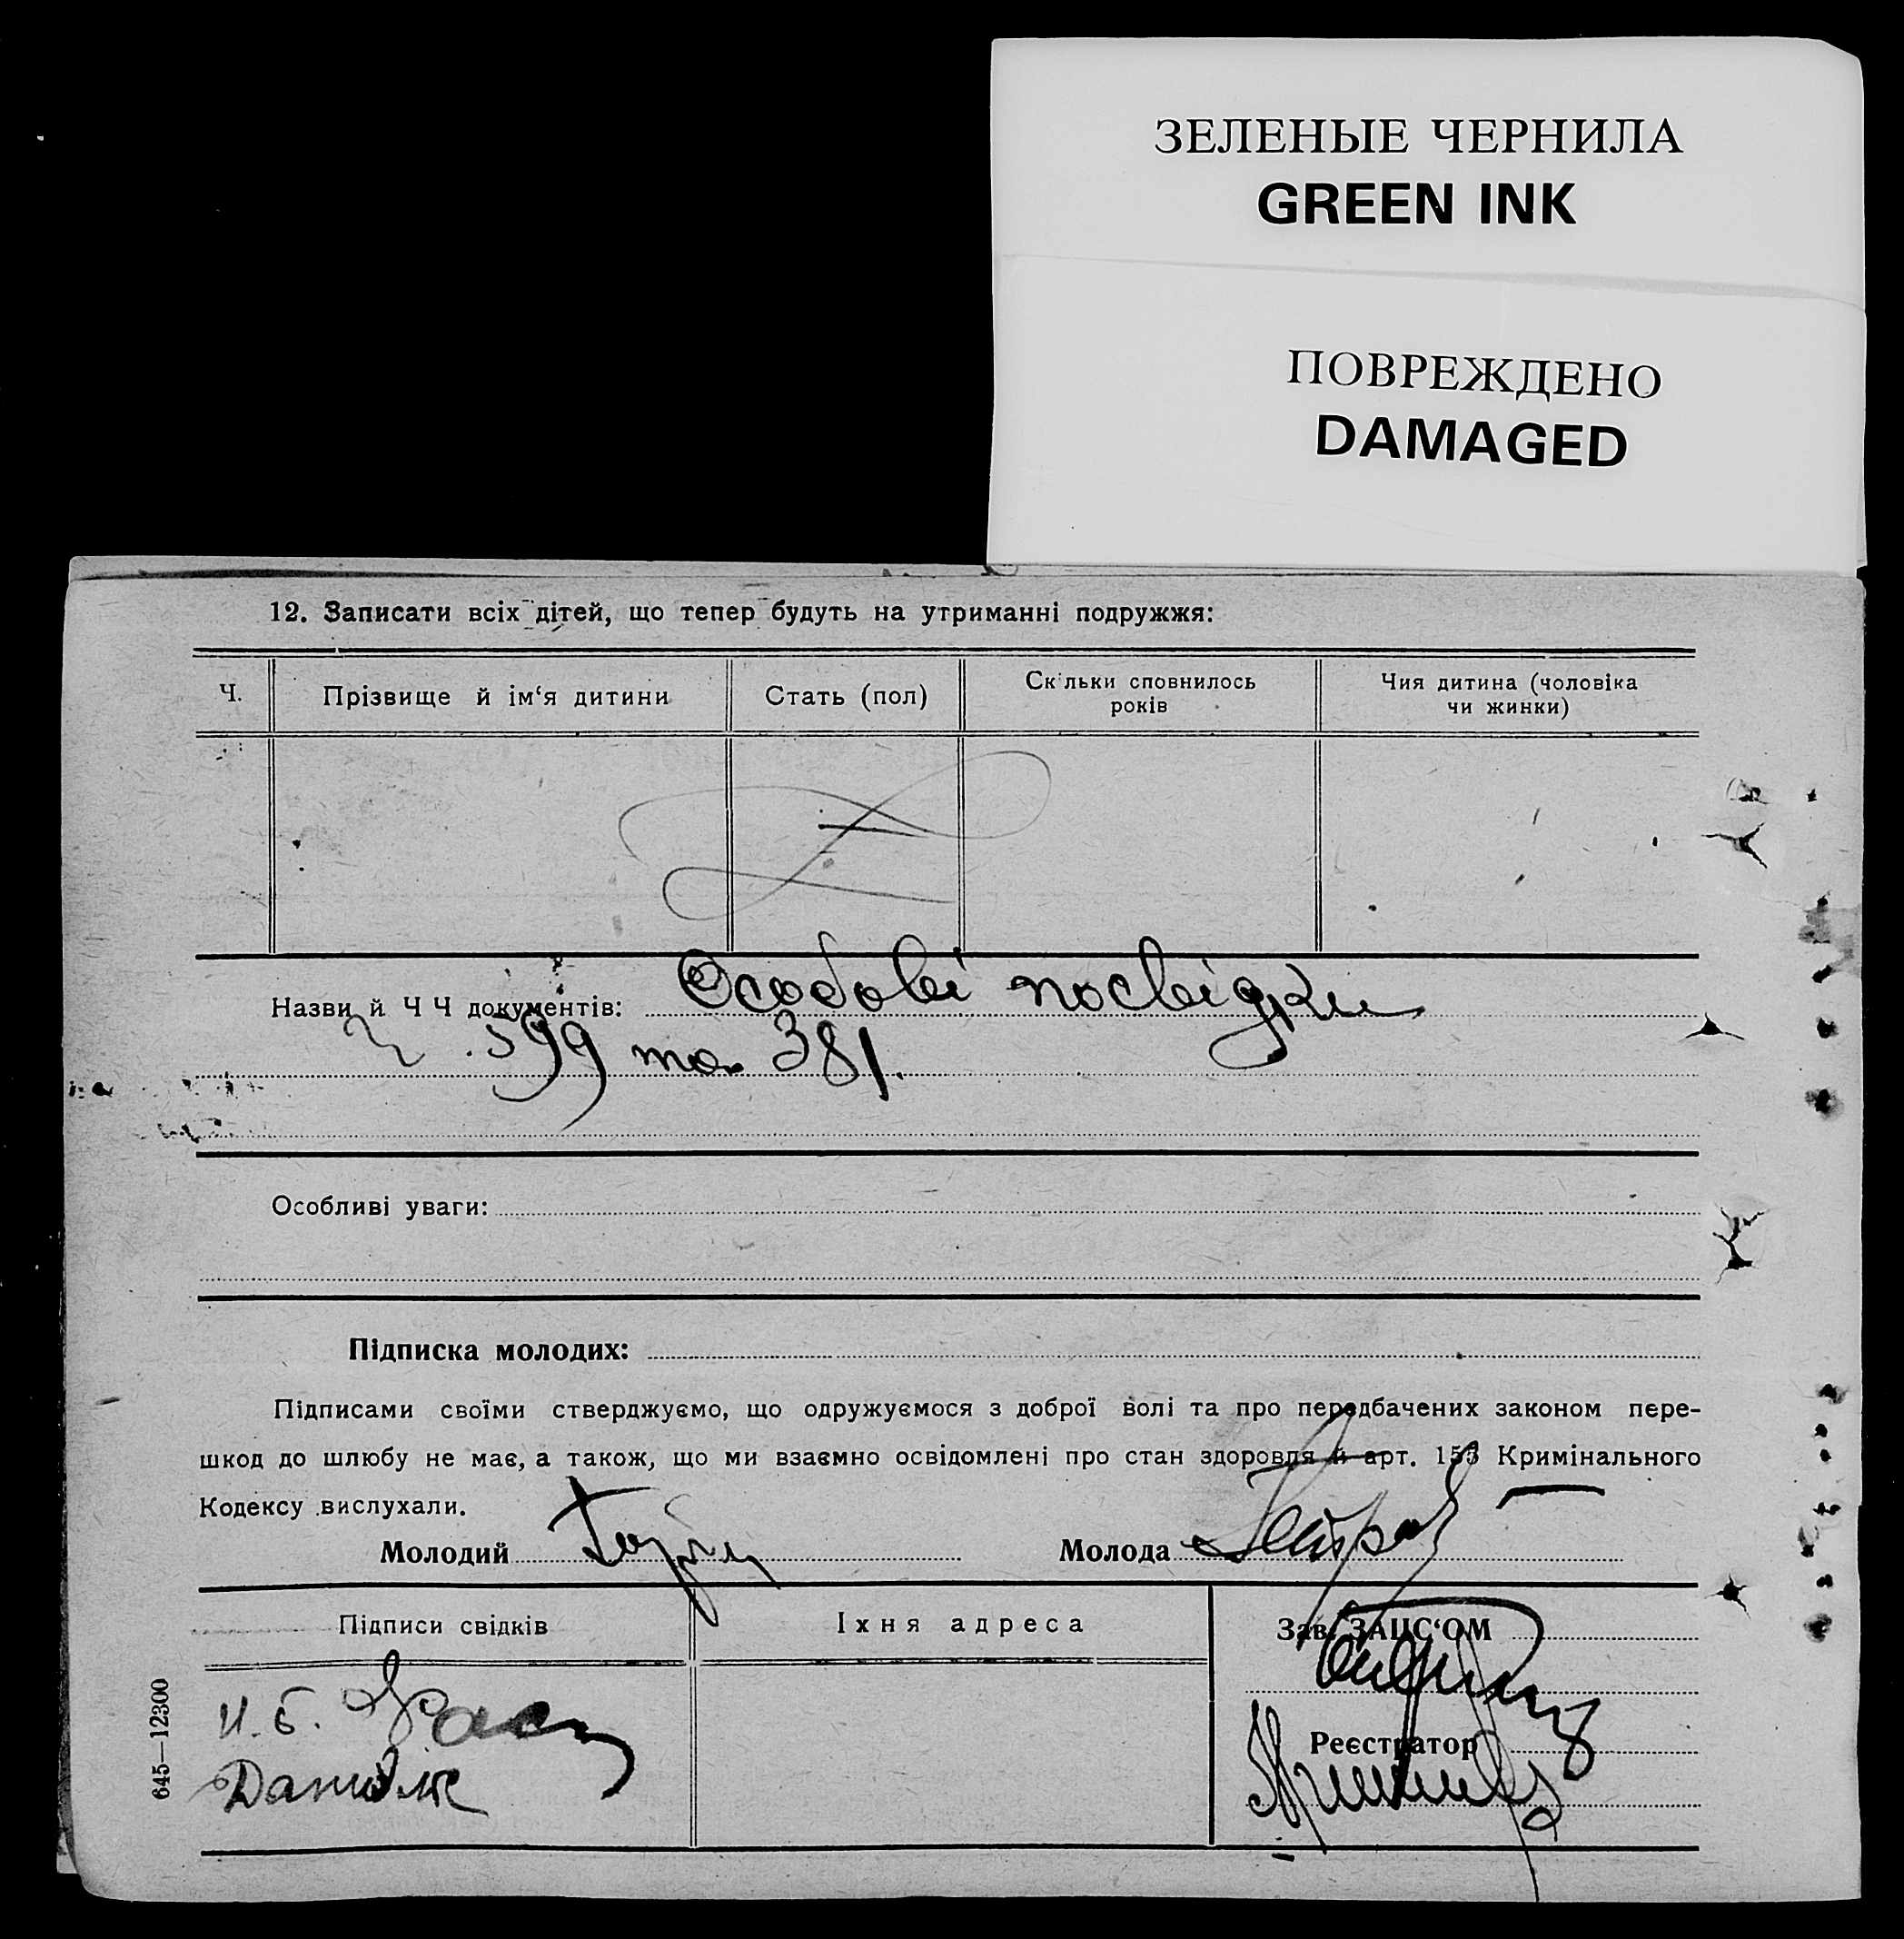 ЗЕЛЕНЫЕ ЧЕРНИЛА
GREEN INK
ПОВРЕЖДЕНО
DAMAGED
12. Записати всіх дітей, що тепер будуть на утриманні подружжя:
Ч.
Прізвище й ім‘я дитини
Стать (пол)
Скільки сповнилось
років
Чия дитина (чоловіка
чи жинки)
Назви й Ч Ч документів: Особові посвідки
599 та 381.
Особливі уваги:
Підписка молодих:
Підписами своїми стверджуємо, що одружуємося з доброї волі та про передбачених законом пере-
шкод до шлюбу не має, а також, що ми взаємно освідомлені про стан здоровля й арт. 155 Кримінального
Кодексу вислухали.
Молодий
Молода
Підписи свідків
Іхня адреса
Зав. ЗАЦС‘ОМ
И. Б.
Реєстратор
645—12300